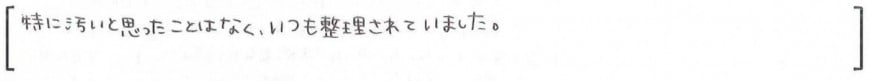 特に汚いと思ったことはなく、いつも整理されていました。